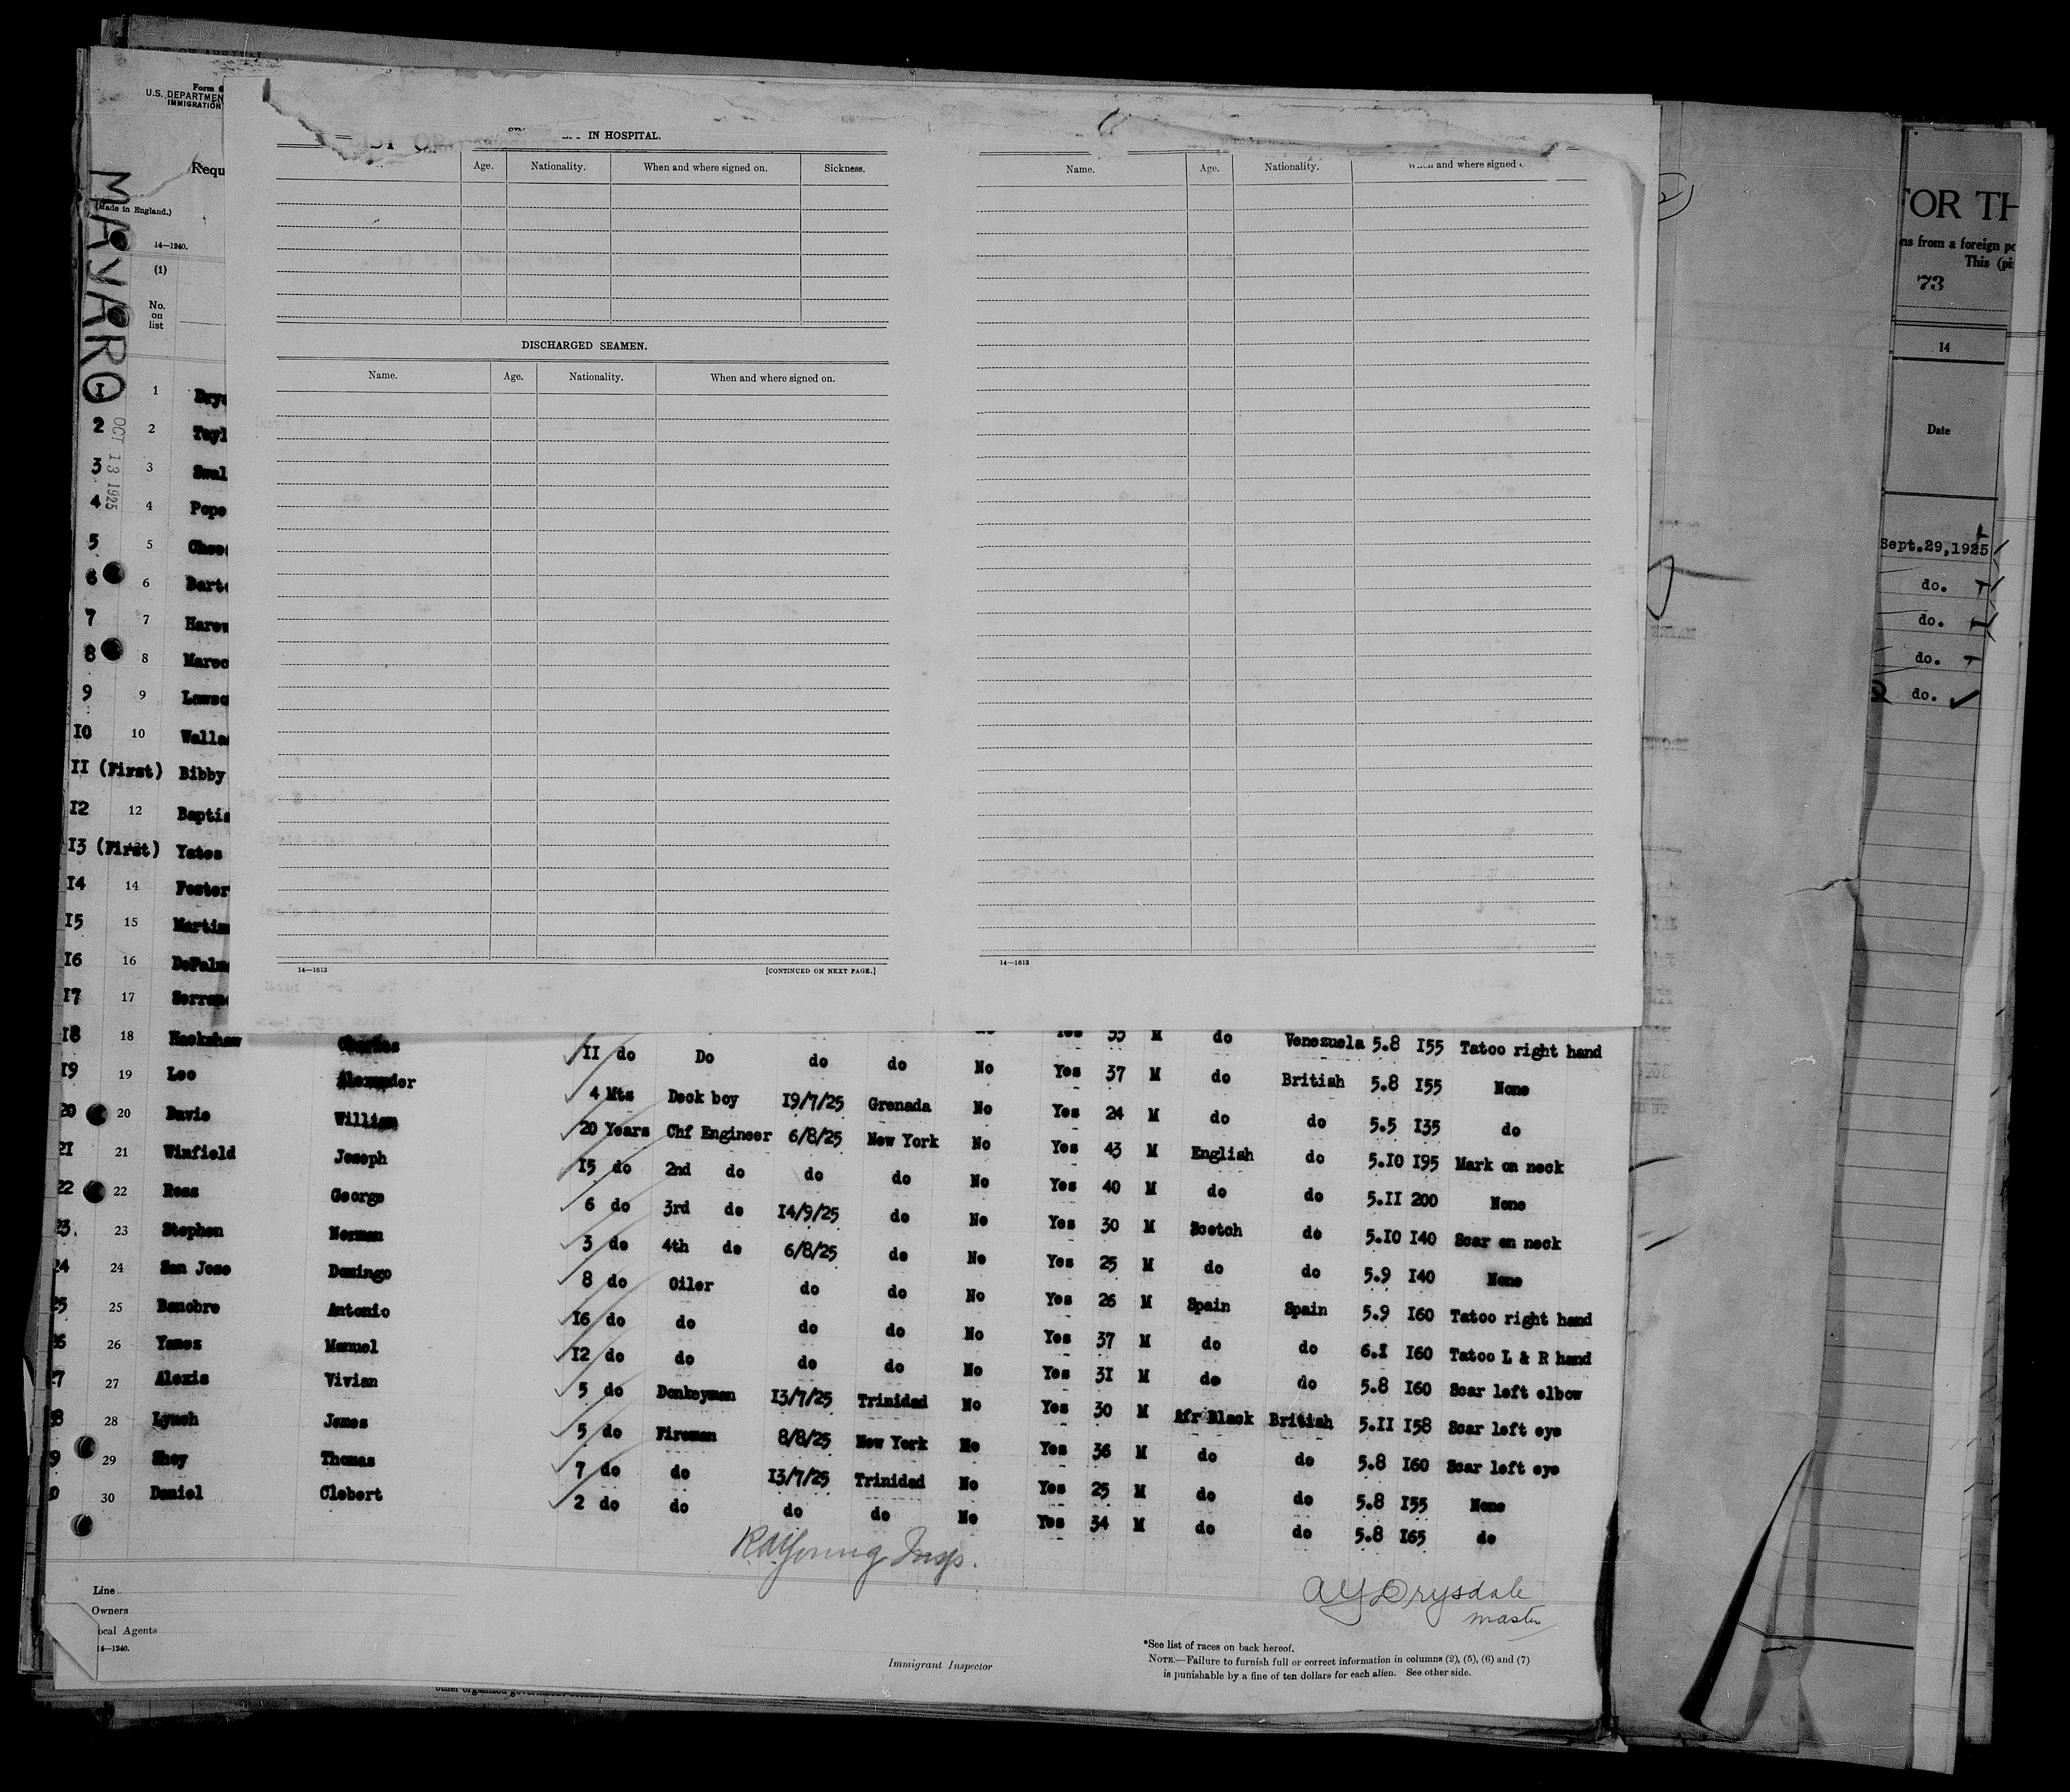 Form 6
U.S. DEPARTMEN
IMMIGRATION
Requ
(Made in England.)
14—1240.
(1)
No.
on
list
MAYARO
OCT 13 1925
IN HOSPITAL.
Age. Nationality. When and where signed on. Sickness.
DISCHARGED SEAMEN.
Name. Age. Nationality. When and where signed on.
14—1613 [CONTINUED ON NEXT PAGE.]
Name. Age. Nationality. When and where signed
14—1613
FOR TH
ns from a foreign po
This (pi
73
14
Date
Sept.29,1925
do.
do.
do.
do.
1 1 Drys
2 2 Tayl
3 3 Swal
4 4 Pope
5 5
6 6
7 7 Harew
8 8 Marec
9 9 Lawso
10 10 Walla
11 (First) Bibby
12 12 Baptis
13 (First) Yates
14 14 Foster
15 15 Martin
16 16 DePalm
17 17 Serran
18 18 Hackshaw Charles 11 do Do do do Yes 35 M do Venezuela 5.8 155 Tatoo right hand
19 19 Leo Alexander 4 Mts Deck boy 19/7/25 Grenada No Yes 37 M do British 5.8 155 None
20 20 Davie William 20 Years Chf Engineer 6/8/25 New York No Yes 24 M do do 5.5 135 do
21 21 Winfield Joseph 15 do 2nd do do do No Yes 43 M English do 5.10 195 Mark on neck
22 22 Ross George 6 do 3rd do 14/9/25 do No Yes 40 M do do 5.11 200 None
23. 23 Stephen Norman 3 do 4th do 6/8/25 do No Yes 30 M Scotch do 5.10 140 Scar on neck
24 24 San Jose Domingo 8 do Oiler do do No Yes 25 M do do 5.9 140 None
25 25 Banobre Antonio 16 do do do do No Yes 26 M Spain Spain 5.9 160 Tatoo right hand
26 26 Yanez Manuel 12 do do do do No Yes 37 M do do 6.1 160 Tatoo L & R hand
27 27 Alexis Vivian 5 do Donkeyman 13/7/25 Trinidad No Yes 31 M do do 5.8 160 Scar left elbow
28 28 Lynch James 5 do Fireman 8/8/25 New York No Yes 30 M Afr Black British 5.11 158 Scar left eye
29 29 Shoy Thomas 7 do do 13/7/25 Trinidad No Yes 36 M do do 5.8 160 Scar left eye
30 Daniel Clebert 2 do do do do No Yes 25 M do do 5.8 155 None
Yes 34 M do do 5.8 165 do
Insp.
A Y Drysdale
master
Line
Owners
ocal Agents
14—1240.
Immigrant Inspector
*See list of races on back hereof.
NOTE.—Failure to furnish full or correct information in columns (2), (5), (6) and (7)
is punishable by a fine of ten dollars for each alien. See other side.